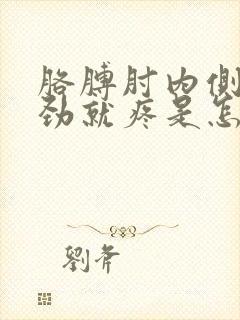 胳膊肘内侧
劲就疼是怎
劉斧